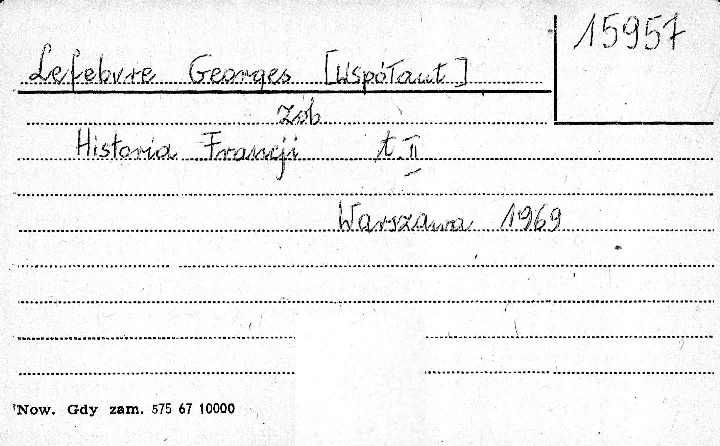 15957
Lefebvre Georges [Współaut]
zob
Historia Francji t. II
Warszawa 1969
Now. Gdy zam. 575 67 10000